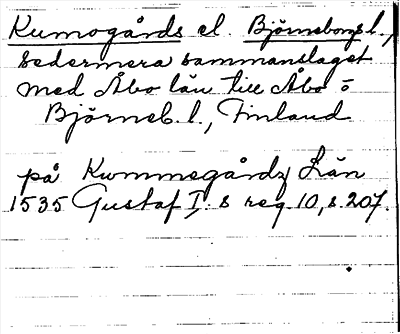 Kumogårds el. Björneborgs l.,
sedermera sammanslaget
med Åbo län till Åbo o
Björneb. l., Finland
på Kummegårdz Län
1535 Gustaf I: s reg. 10, s. 207.